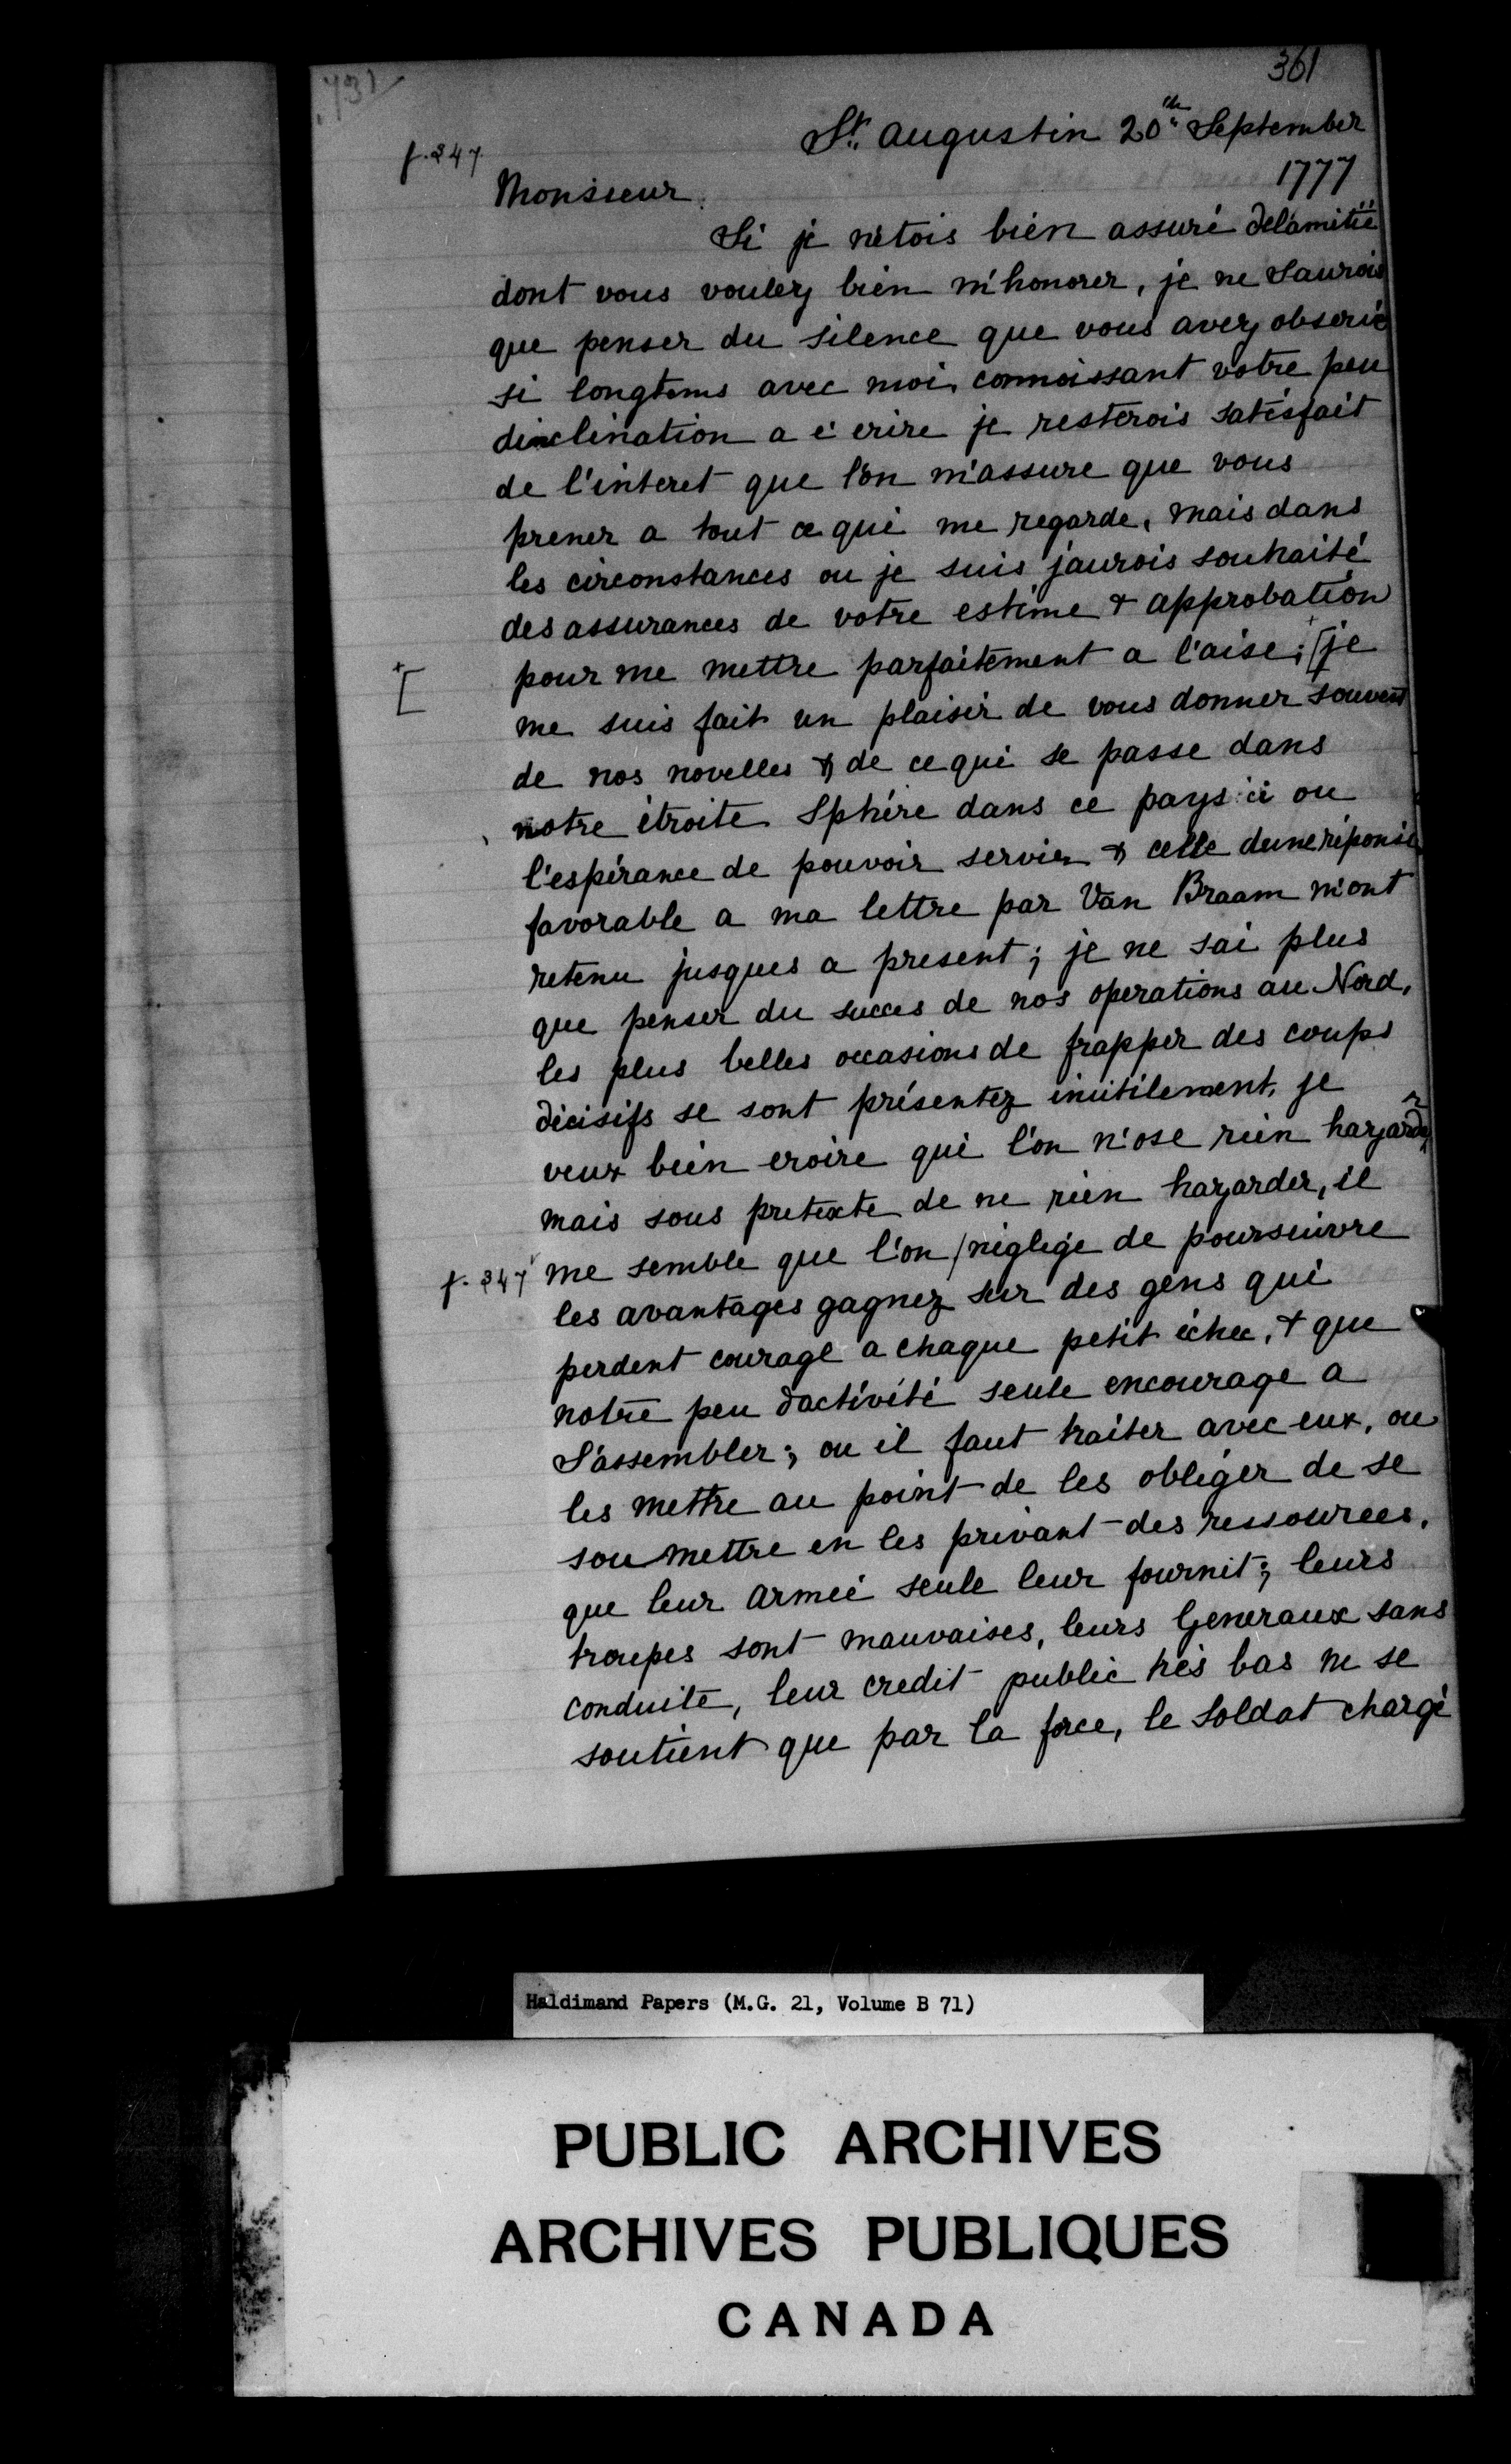 361
.731
St. Augustin 20th September
f.347
1777
Monsieur.
Si je n'étois bien assuré del'amitié
dont vous voulez bien m'honorer, je ne saurois
que penser du silence que vous avez observé
si longtems avec moi, connoissant votre peu
dinclination a écrire je resterois satisfait
de l'interet que l'on m'assure que vous
prenez a tout ce qui me regarde, mais dans
les circonstances ou je suis j'aurois souhaité
des assurances de votre estime & approbation
pour me mettre parfaitement a l'aise; + [je
+ [
me suis fait un plaisir de vous donner souvent
de nos novelles & de ce qui se passe dans
notre étroite Sphère dans ce pays ci ou
l'espérance de pouvoir servir & celle dune réponse
favorable a ma lettre par Van Braam m'ont
retenu jusques a present; je ne sai plus
que penser du succes de nos operations au Nord,
les plus belles occasions de frapper des coups
décisifs se sont présentez inutilement, je
veux bien croire qui l'on n'ose rien hazarder
mais sous pretexte de ne rien hazarder, il
f. 347v me semble que l'on / néglege de poursuivre
les avantages gagnez sur des gens qui
perdent courage a chaque petit échec, & que
notre peu dactivité seule encourage a
S'assembler; ou il faut traiter avec eux, ou
les mettre au point de les obliger de se
soumettre en les privant des ressources,
que leur armée seule leur fournit; leurs
troupes sont mauvaises, leurs Generaux sans
conduite, leur credit public très bas ne se
soutient que par la force, le soldat chargé
Haldimand Papers (M.G. 21, Volume B 71)
PUBLIC ARCHIVES
ARCHIVES PUBLIQUES
CANADA